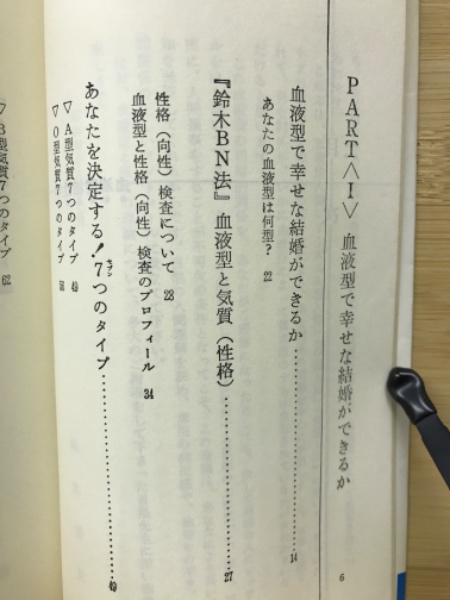 PART〈I〉 血液型で幸せな結婚ができるか
血液型で幸せな結婚ができるか……………………14
あなたの血液型は何型？ 22
『鈴木BN法』血液型と気質（性格）……………………27
性格（向性）検査について 28
血液型と性格（向性）検査のプロフィール 34
あなたを決定する！7つのタイプ……………………49
セブン
▽A型気質7つのタイプ 49
▽O型気質7つのタイプ
▽B型気質7つのタイプ 62
6